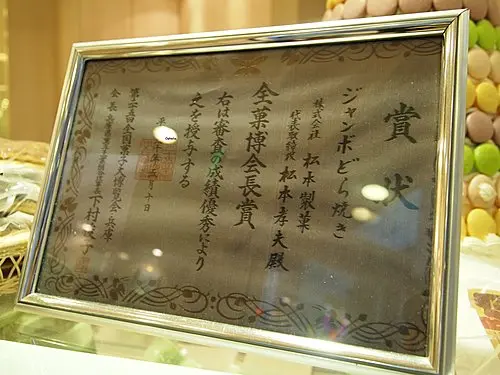 賞状
ジャンボどら焼き
株式会社 松本製菓
代表取締役 松本孝夫殿
全菓博会長賞
右は審査の成績優秀により
之を授与する
十日
第二十五回全国菓子大博覧会・兵庫
会長
下村